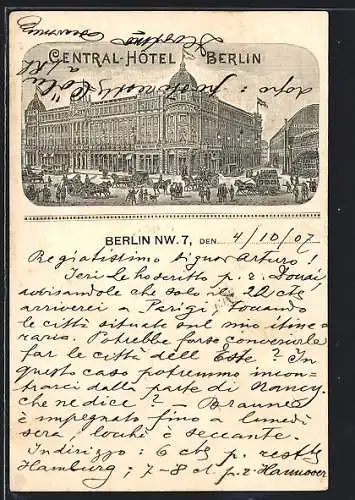 CENTRAL-HÔTEL BERLIN
BERLIN NW. 7, DEN 4/10/07
Pregiatissimo Signor Arturo!
Ieri Le ho scritto p. r. Douai,
avvisandole che solo il 22 cte
arriverei a Parigi, toccando
le città situate sul mio itine-
rario. Potrebbe forse convenirle
far le città dell'Este? In
questo caso potremmo incon-
trarci dalla parte di Nancy.
che ne dice? — Braune
è impegnato fino a lunedì
sera, locchè è seccante.
Indirizzo: 6 cte p. rest.
Hamburg; 7-8 ct. p.r. Hannover
dopo: